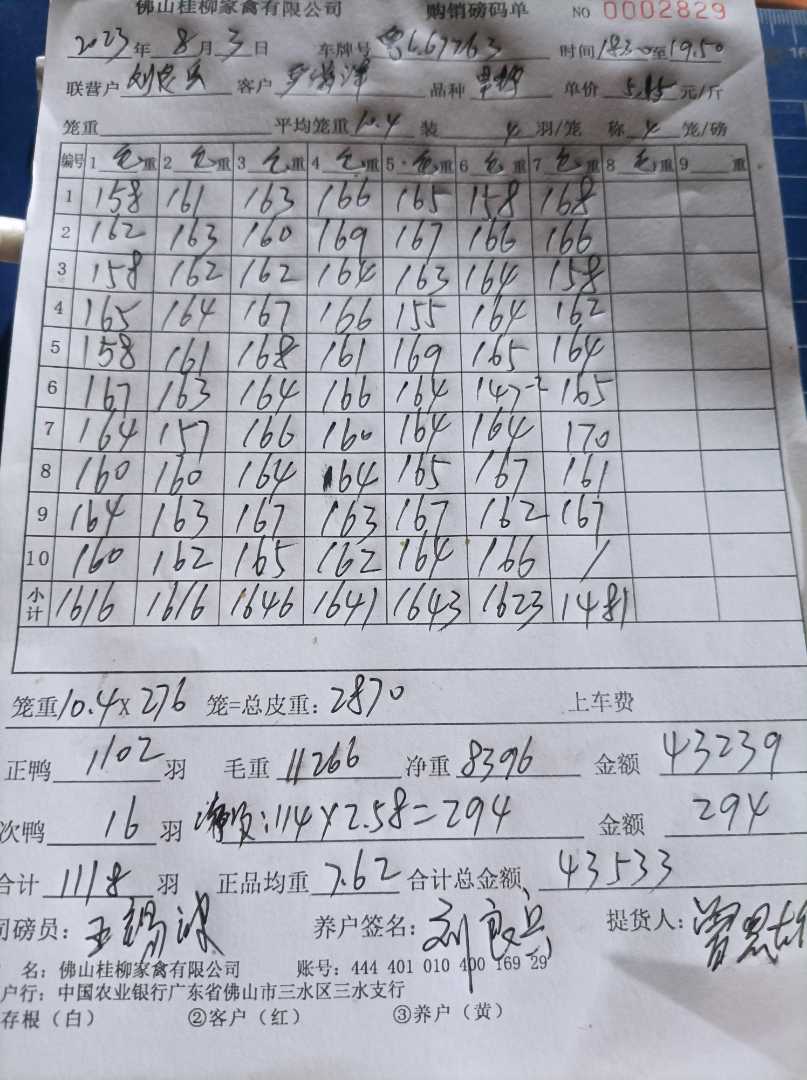 佛山桂柳家禽有限公司 购销磅码单 NO 0002829
2023年8月3日 车牌号 粤L67763 时间 1830至19.50
联营户 刘良兵 客户 品种 单价 5.15 元/斤
笼重 平均笼重 10.4 装 4 羽/笼 称 4 笼/磅
编号 1 毛重 2 毛重 3 毛重 4 毛重 5 毛重 6 毛重 7 毛重 8 毛重 9 重
1 158 161 163 166 165 158 168
2 162 163 160 169 167 166 166
3 158 162 162 164 163 164 158
4 165 164 167 166 155 164 162
5 158 161 168 161 169 165 164
6 167 163 164 166 164 147-2 165
7 164 157 166 160 164 164 170
8 160 160 164 164 165 167 161
9 164 163 167 163 167 162 167
10 160 162 165 162 164 166 /
小计 1616 1616 1646 1641 1643 1623 1481
笼重 10.4 X 276 笼=总皮重: 2870 上车费
正鸭 1102 羽 毛重 11266 净重 8396 金额 43239
次鸭 16 羽 净重:114X2.58=294 金额 294
合计 1118 羽 正品均重 7.62 合计总金额 43533
司磅员: 王锡波 养户签名: 刘良兵 提货人:
名: 佛山桂柳家禽有限公司 账号: 444 401 010 400 169 29
户行: 中国农业银行广东省佛山市三水区三水支行
存根(白) ②客户(红) ③养户(黄)